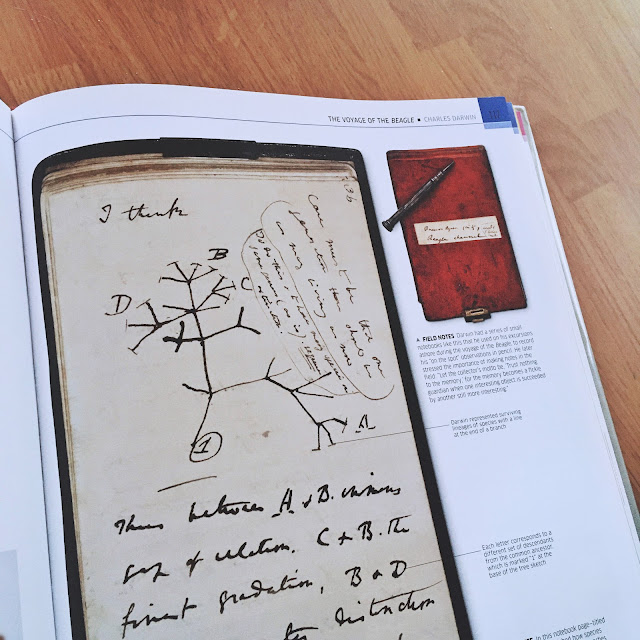 THE VOYAGE OF THE BEAGLE • CHARLES DARWIN
I think
36
Case must be that one
generation then should be
as many living as now
To do this & to have many species in
same genus (as is) requires
extinction
B
C
D
A
1
Thus between A & B. immens
gap of relation. C & B. the
finest gradation, B & D
rather distinction
Beagle
FIELD NOTES Darwin had a series of small
notebooks like this that he used on his excursions
ashore during the voyage of the Beagle, to record
his "on the spot" observations in pencil. He later
stressed the importance of making notes in the
field: "Let the collector's motto be, 'Trust nothing
to the memory;' for the memory becomes a fickle
guardian when one interesting object is succeeded
by another still more interesting."
Darwin represented surviving
lineages of species with a line
at the end of a branch
Each letter corresponds to a
different set of descendants
from the common ancestor,
which is marked "1" at the
base of the tree sketch
In this notebook page–titled
and how species